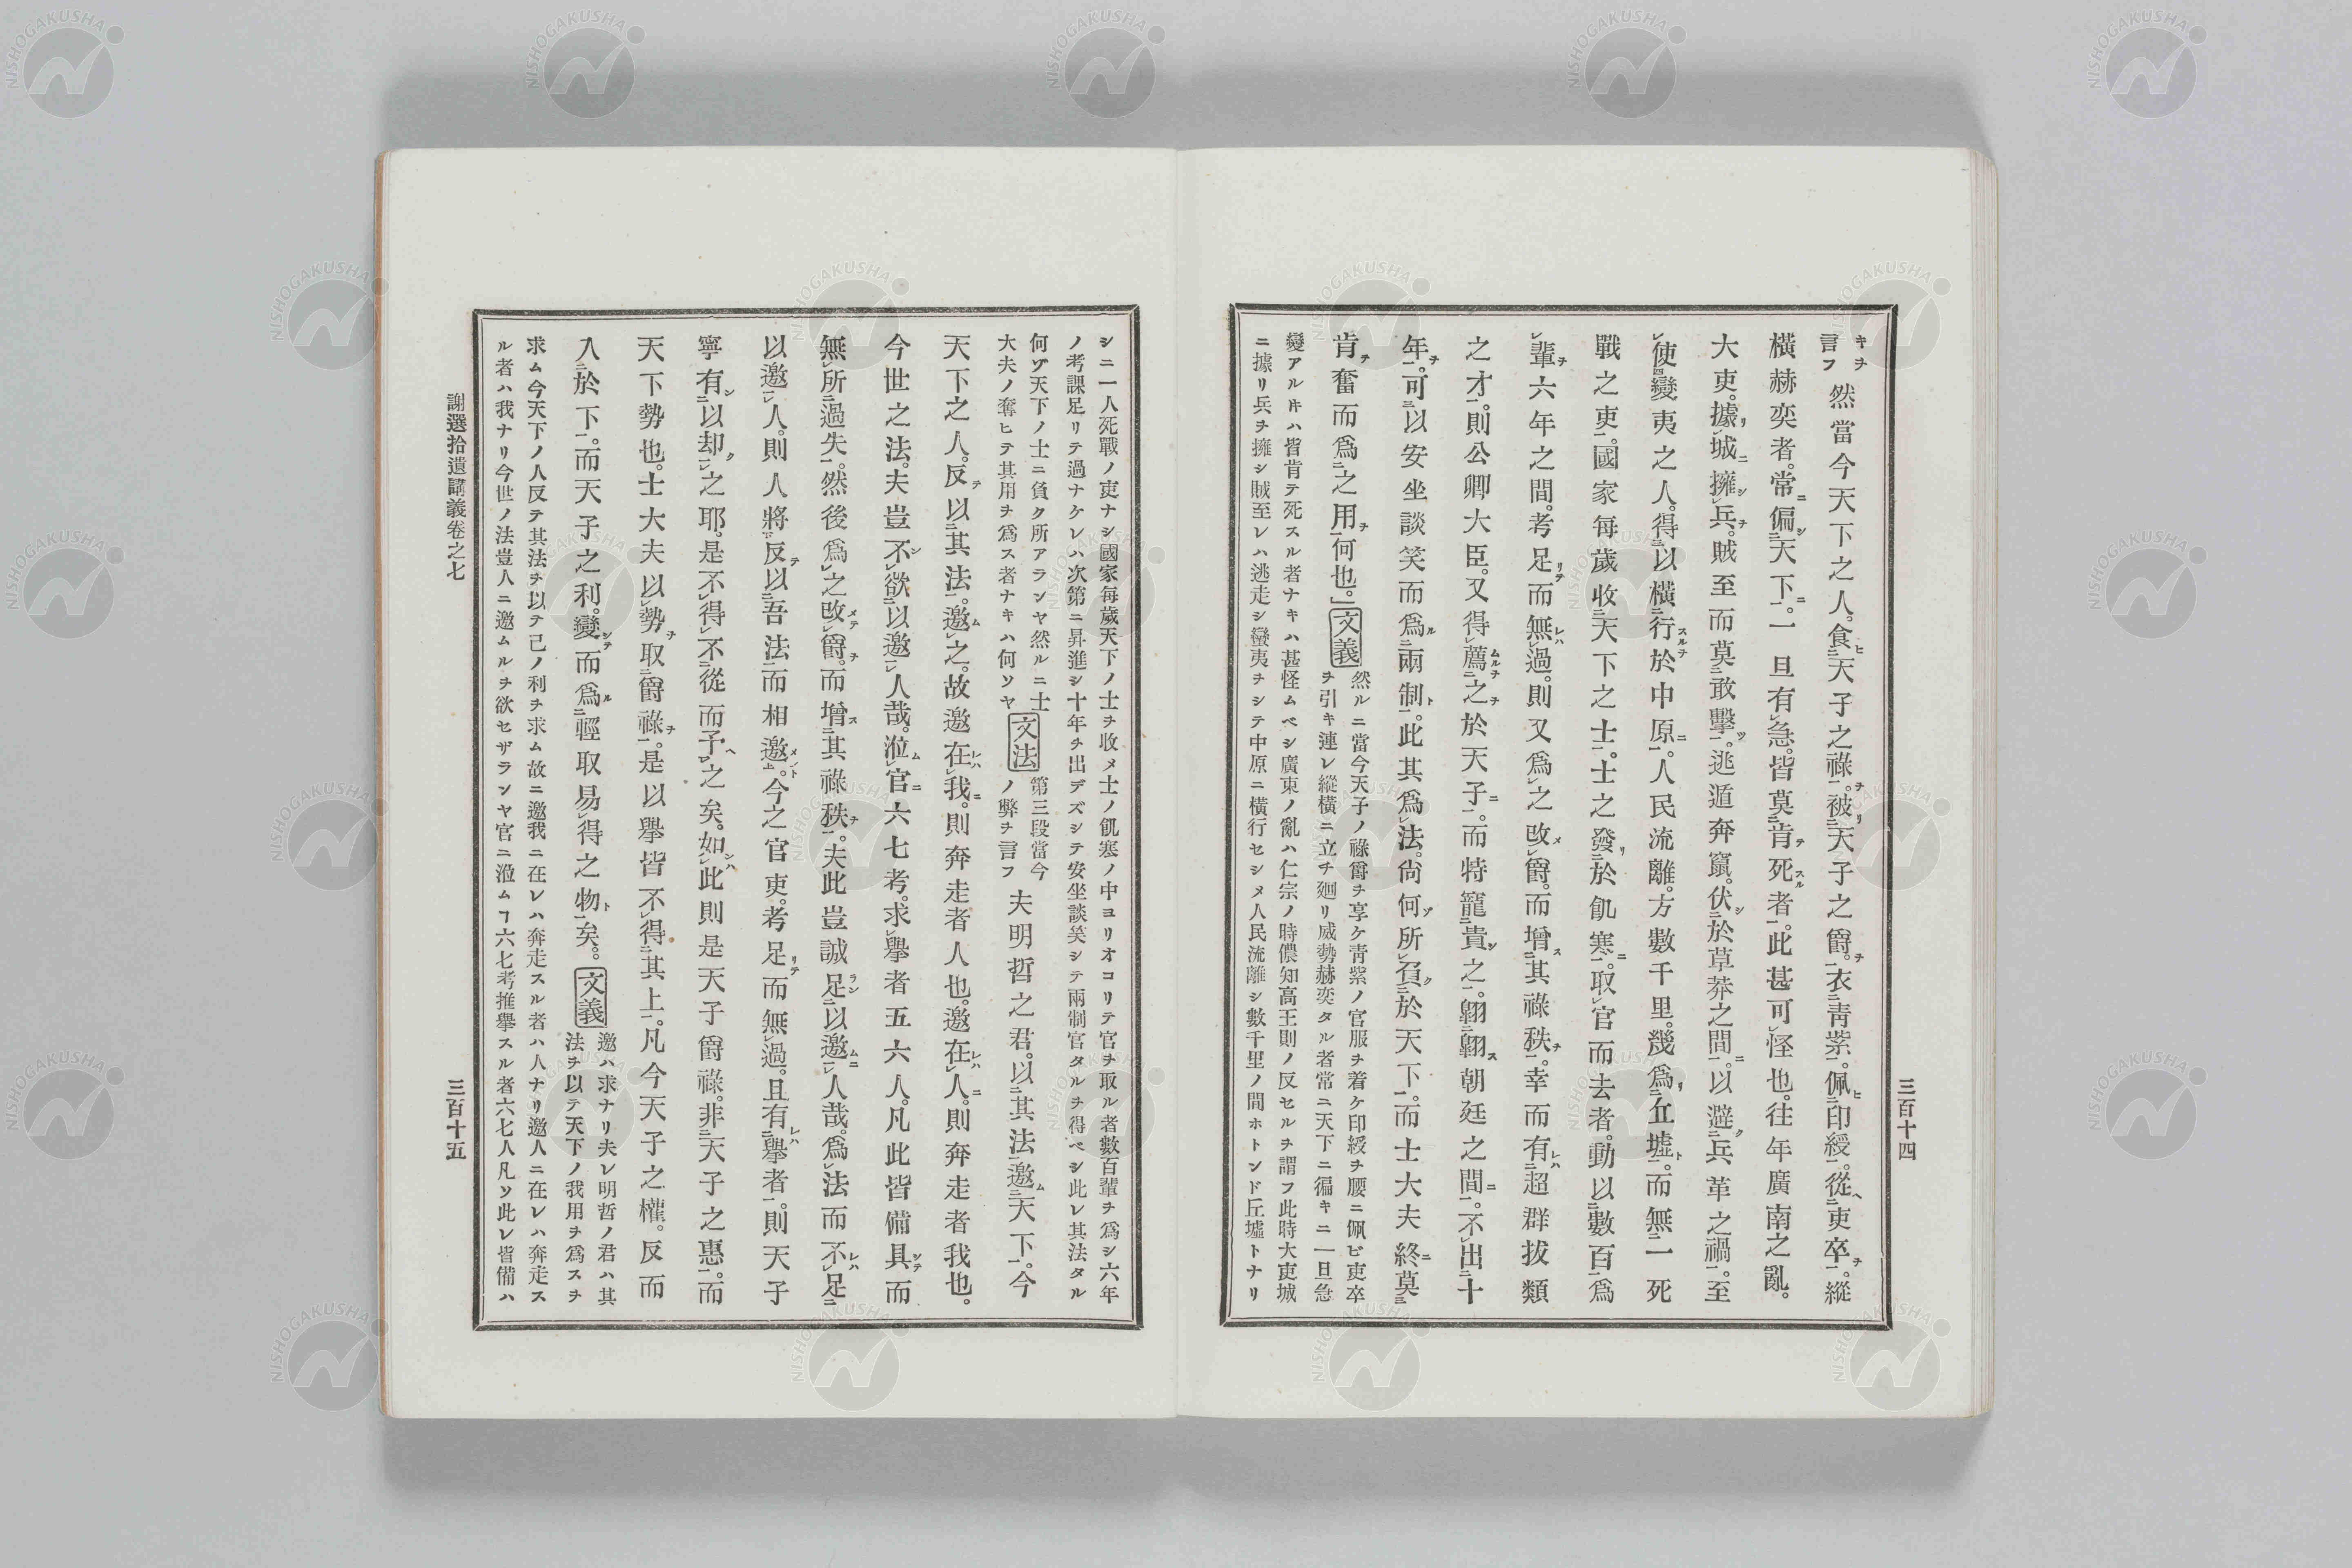 三百十四
キヲ
言フ
然當今天下之人。食天子之祿。被天子之爵。衣靑紫。佩印綬。從吏卒。縱
橫赫奕者。常徧天下。一旦有急。皆莫肯死者。此甚可怪也。往年廣南之亂。
大吏。據城擁兵。賊至而莫敢擊。逃遁奔竄。伏於草莽之間。以避兵革之禍。至
使變夷之人。得以橫行於中原。人民流離。方數千里。幾爲丘墟。而無一死
戰之吏。國家每歲收天下之士。士之發於飢寒。取官而去者。動以數百爲
輩六年之間。考足而無過。則又爲之改爵。而增其祿秩。幸而有超群拔類
之才。則公卿大臣。又得薦之於天子。而特寵貴之。翺翺朝廷之間。不出十
年。可以安坐談笑而爲兩制。此其爲法。尙何所負於天下。而士大夫終莫
肯奮而爲之用何也。」文義
然ルニ當今天子ノ祿爵ヲ享ケ靑紫ノ官服ヲ着ケ印綬ヲ腰ニ佩ビ吏卒
ヲ引キ連レ縱橫ニ立チ廻リ威勢赫奕タル者常ニ天下ニ徧キニ一旦急
變アルトキハ皆肯テ死スル者ナキハ甚怪ムベシ廣東ノ亂ハ仁宗ノ時儂知高王則ノ反セルヲ謂フ此時大吏城
ニ據リ兵ヲ擁シ賊至レハ逃走シ蠻夷ヲシテ中原ニ橫行セシメ人民流離シ數千里ノ間ホトンド丘墟トナリ
シニ一人死戰ノ吏ナシ國家每歲天下ノ士ヲ收メ士ノ飢寒ノ中ヨリオコリテ官ヲ取ル者數百輩ヲ爲シ六年
ノ考課足リテ過ナケレハ次第ニ昇進シ十年ヲ出デズシテ安坐談笑シテ兩制官タルヲ得ベシ此レ其法タル
何ゾ天下ノ士ニ負ク所アランヤ然ルニ士
大夫ノ奮ヒテ其用ヲ爲ス者ナキハ何ソヤ
文法
第三段當今
ノ弊ヲ言フ
夫明哲之君。以其法邀天下。今
天下之人。反以其法。邀之。故邀在我。則奔走者人也。邀在人。則奔走者我也。
今世之法。夫豈不欲以邀人哉。涖官六七考。求擧者五六人。凡此皆備具而
無所過失。然後爲之改爵。而增其祿秩。夫此豈誠足以邀人哉。爲法而不足
以邀人。則人將反以吾法而相邀。今之官吏。考足而無過。且有擧者。則天子
寧有以却之耶。是不得不從而予之矣。如此則是天子爵祿。非天子之惠。而
天下勢也。士大夫以勢取爵祿。是以擧皆不得其上。凡今天子之權。反而
入於下。而天子之利。變而爲輕取易得之物矣。文義
邀ハ求ナリ夫レ明哲ノ君ハ其
法ヲ以テ天下ノ我用ヲ爲スヲ
求ム今天下ノ人反テ其法ヲ以テ己ノ利ヲ求ム故ニ邀我ニ在レハ奔走スル者ハ人ナリ邀人ニ在レハ奔走ス
ル者ハ我ナリ今世ノ法豈人ニ邀ムルヲ欲セザランヤ官ニ涖ムヿ六七考推擧スル者六七人凡ソ此レ皆備ハ
謝選拾遺講義卷之七
三百十五